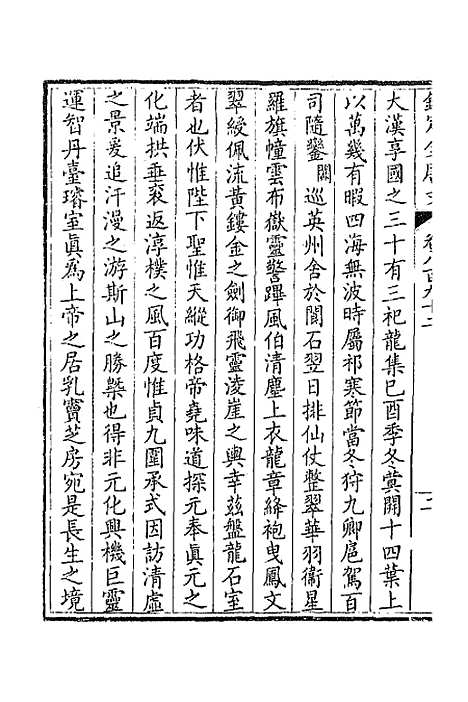 大漢享國之三十有三祀龍集巳酉季冬蓂開十四葉上
以萬幾有暇四海無波時屬祁寒節當冬狩九卿扈駕百
司隨鑾闕巡英州舍於閬石翌日排仙仗整翠華羽衞星
羅旗幢雲布嶽靈警蹕風伯清塵上衣龍章絳袍曳鳳文
翠綬佩流黃鏤金之劍御飛靈淩崖之輿幸茲盤龍石室
者也伏惟陛下聖惟天縱功格帝堯味道探元奉眞元之
化端拱垂裒返淳樸之風百度惟貞九圍承式因訪清虛
之景爰追汗漫之游斯山之勝槩也得非元化興機巨靈
運智丹臺璿室眞為上帝之居乳竇芝房宛是長生之境